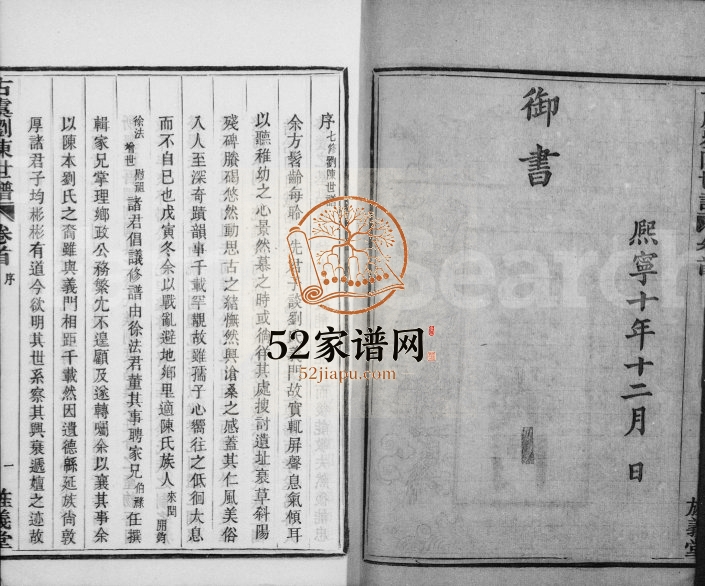 御書
熙寧十年十二月 日
旌義堂
序 七修劉陳世譜
余方髫齡每聆 先君子談劉 門故實輒屏聲息氣傾耳
以聽稚幼之心景然慕之時或徜徉其處搜討遺址衰草斜陽
殘碑賸碣悠然動思古之 憮然興滄桑之感蓋其仁風美俗
入人至深奇蹟韻事千載罕覯故雖孺子心嚮往之低徊太息
而不自已也戊寅冬余以戰亂避地鄉里適陳氏族人 來問 開鈞
徐法 諸君倡議修譜由徐法君董其事聘家兄 伯 任撰
輯家兄掌理鄉政公務繁冗不遑顧及遂轉囑余以襄其事余
以陳本劉氏之裔雖與義門相距千載然因遺德緜延族尙敦
厚諸君子均彬彬有道今欲明其世系察其興衰遞嬗之迹故
古虞劉陳世譜 卷首 序 一 旌義堂
52家谱网
52jiapu.com
Search